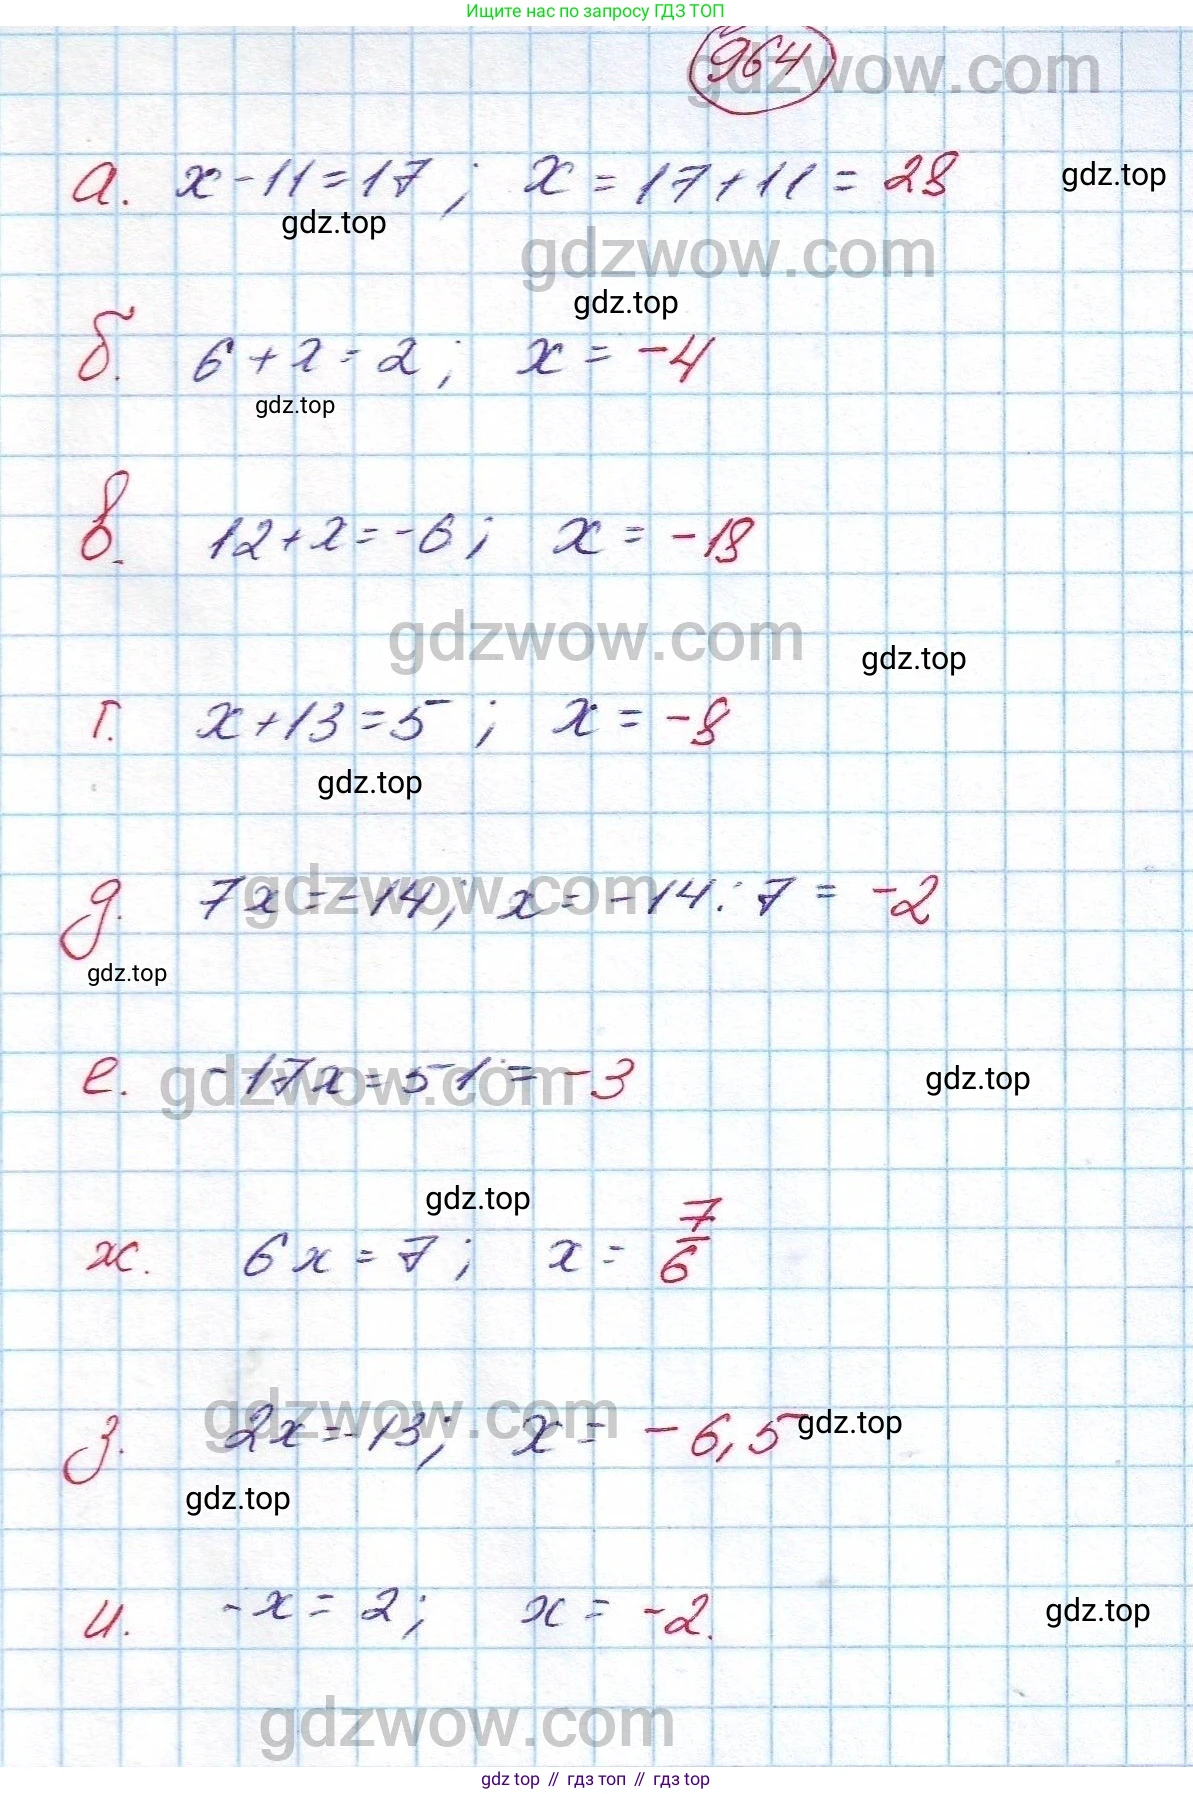 Ищите нас по запросу ГДЗ ТОП
964
gdzwow.com
а. x - 11 = 17 ; x = 17 + 11 = 28
gdz.top
gdz.top
gdzwow.com
gdz.top
б. 6 + x = 2 ; x = -4
gdz.top
в. 12 + x = -6 ; x = -18
gdzwow.com
gdz.top
г. x + 13 = 5 ; x = -8
gdz.top
gdzwow.com
д. 7x = -14 ; x = -14 : 7 = -2
gdz.top
gdzwow.com
е. -17x = 51 = -3
gdz.top
gdz.top
ж. 6x = 7 ; x = 7/6
gdzwow.com
з. 2x = -13 ; x = -6,5
gdz.top
gdz.top
и. -x = 2 ; x = -2.
gdz.top
gdzwow.com
gdz top // гдз топ // gdz top